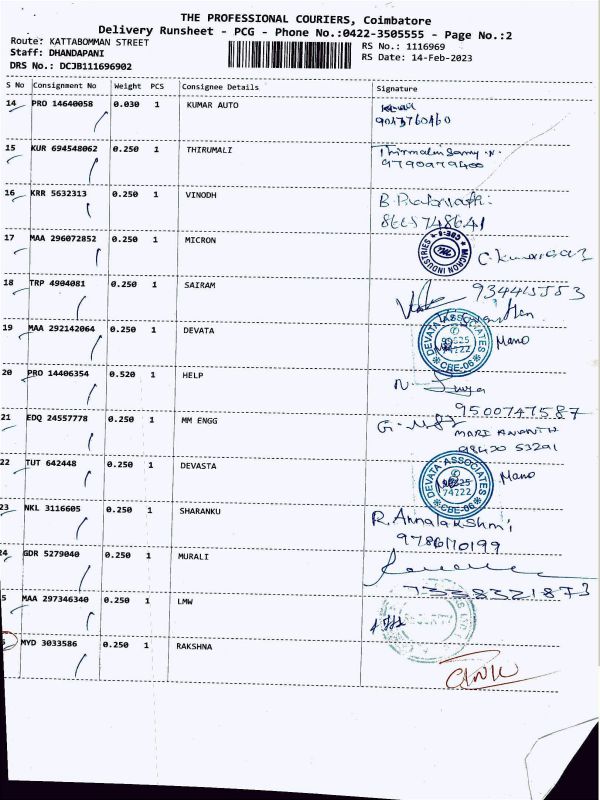 THE PROFESSIONAL COURIERS, Coimbatore
Delivery Runsheet - PCG - Phone No.:0422-3505555 - Page No.:2
Route: KATTABOMMAN STREET RS No.: 1116969
Staff: DHANDAPANI RS Date: 14-Feb-2023
DRS No.: DCJB111696902
S No Consignment No Weight PCS Consignee Details Signature
14 PRO 14640058 0.030 1 KUMAR AUTO
15 KUR 694548062 0.250 1 THIRUMALI
9790979400
16 KRR 5632313 0.250 1 VINODH
17 MAA 296072852 0.250 1 MICRON
MICRON INDUSTRIES CBE-6
18 TRP 4904081 0.250 1 SAIRAM
19 MAA 292142064 0.250 1 DEVATA
DEVATA ASSOCIATES CBE-06 Mano
20 PRO 14406354 0.520 1 HELP
9500747587
21 EDQ 24557778 0.250 1 MM ENGG
MARI ANANTH
98420 53291
22 TUT 642448 0.250 1 DEVASTA
DEVATA ASSOCIATES 74222 CBE-06 Mano
23 NKL 3116605 0.250 1 SHARANKU
R. Annalakshmi
24 GDR 5279040 0.250 1 MURALI
7338321873
5 MAA 297346340 0.250 1 LMW
MYD 3033586 0.250 1 RAKSHNA